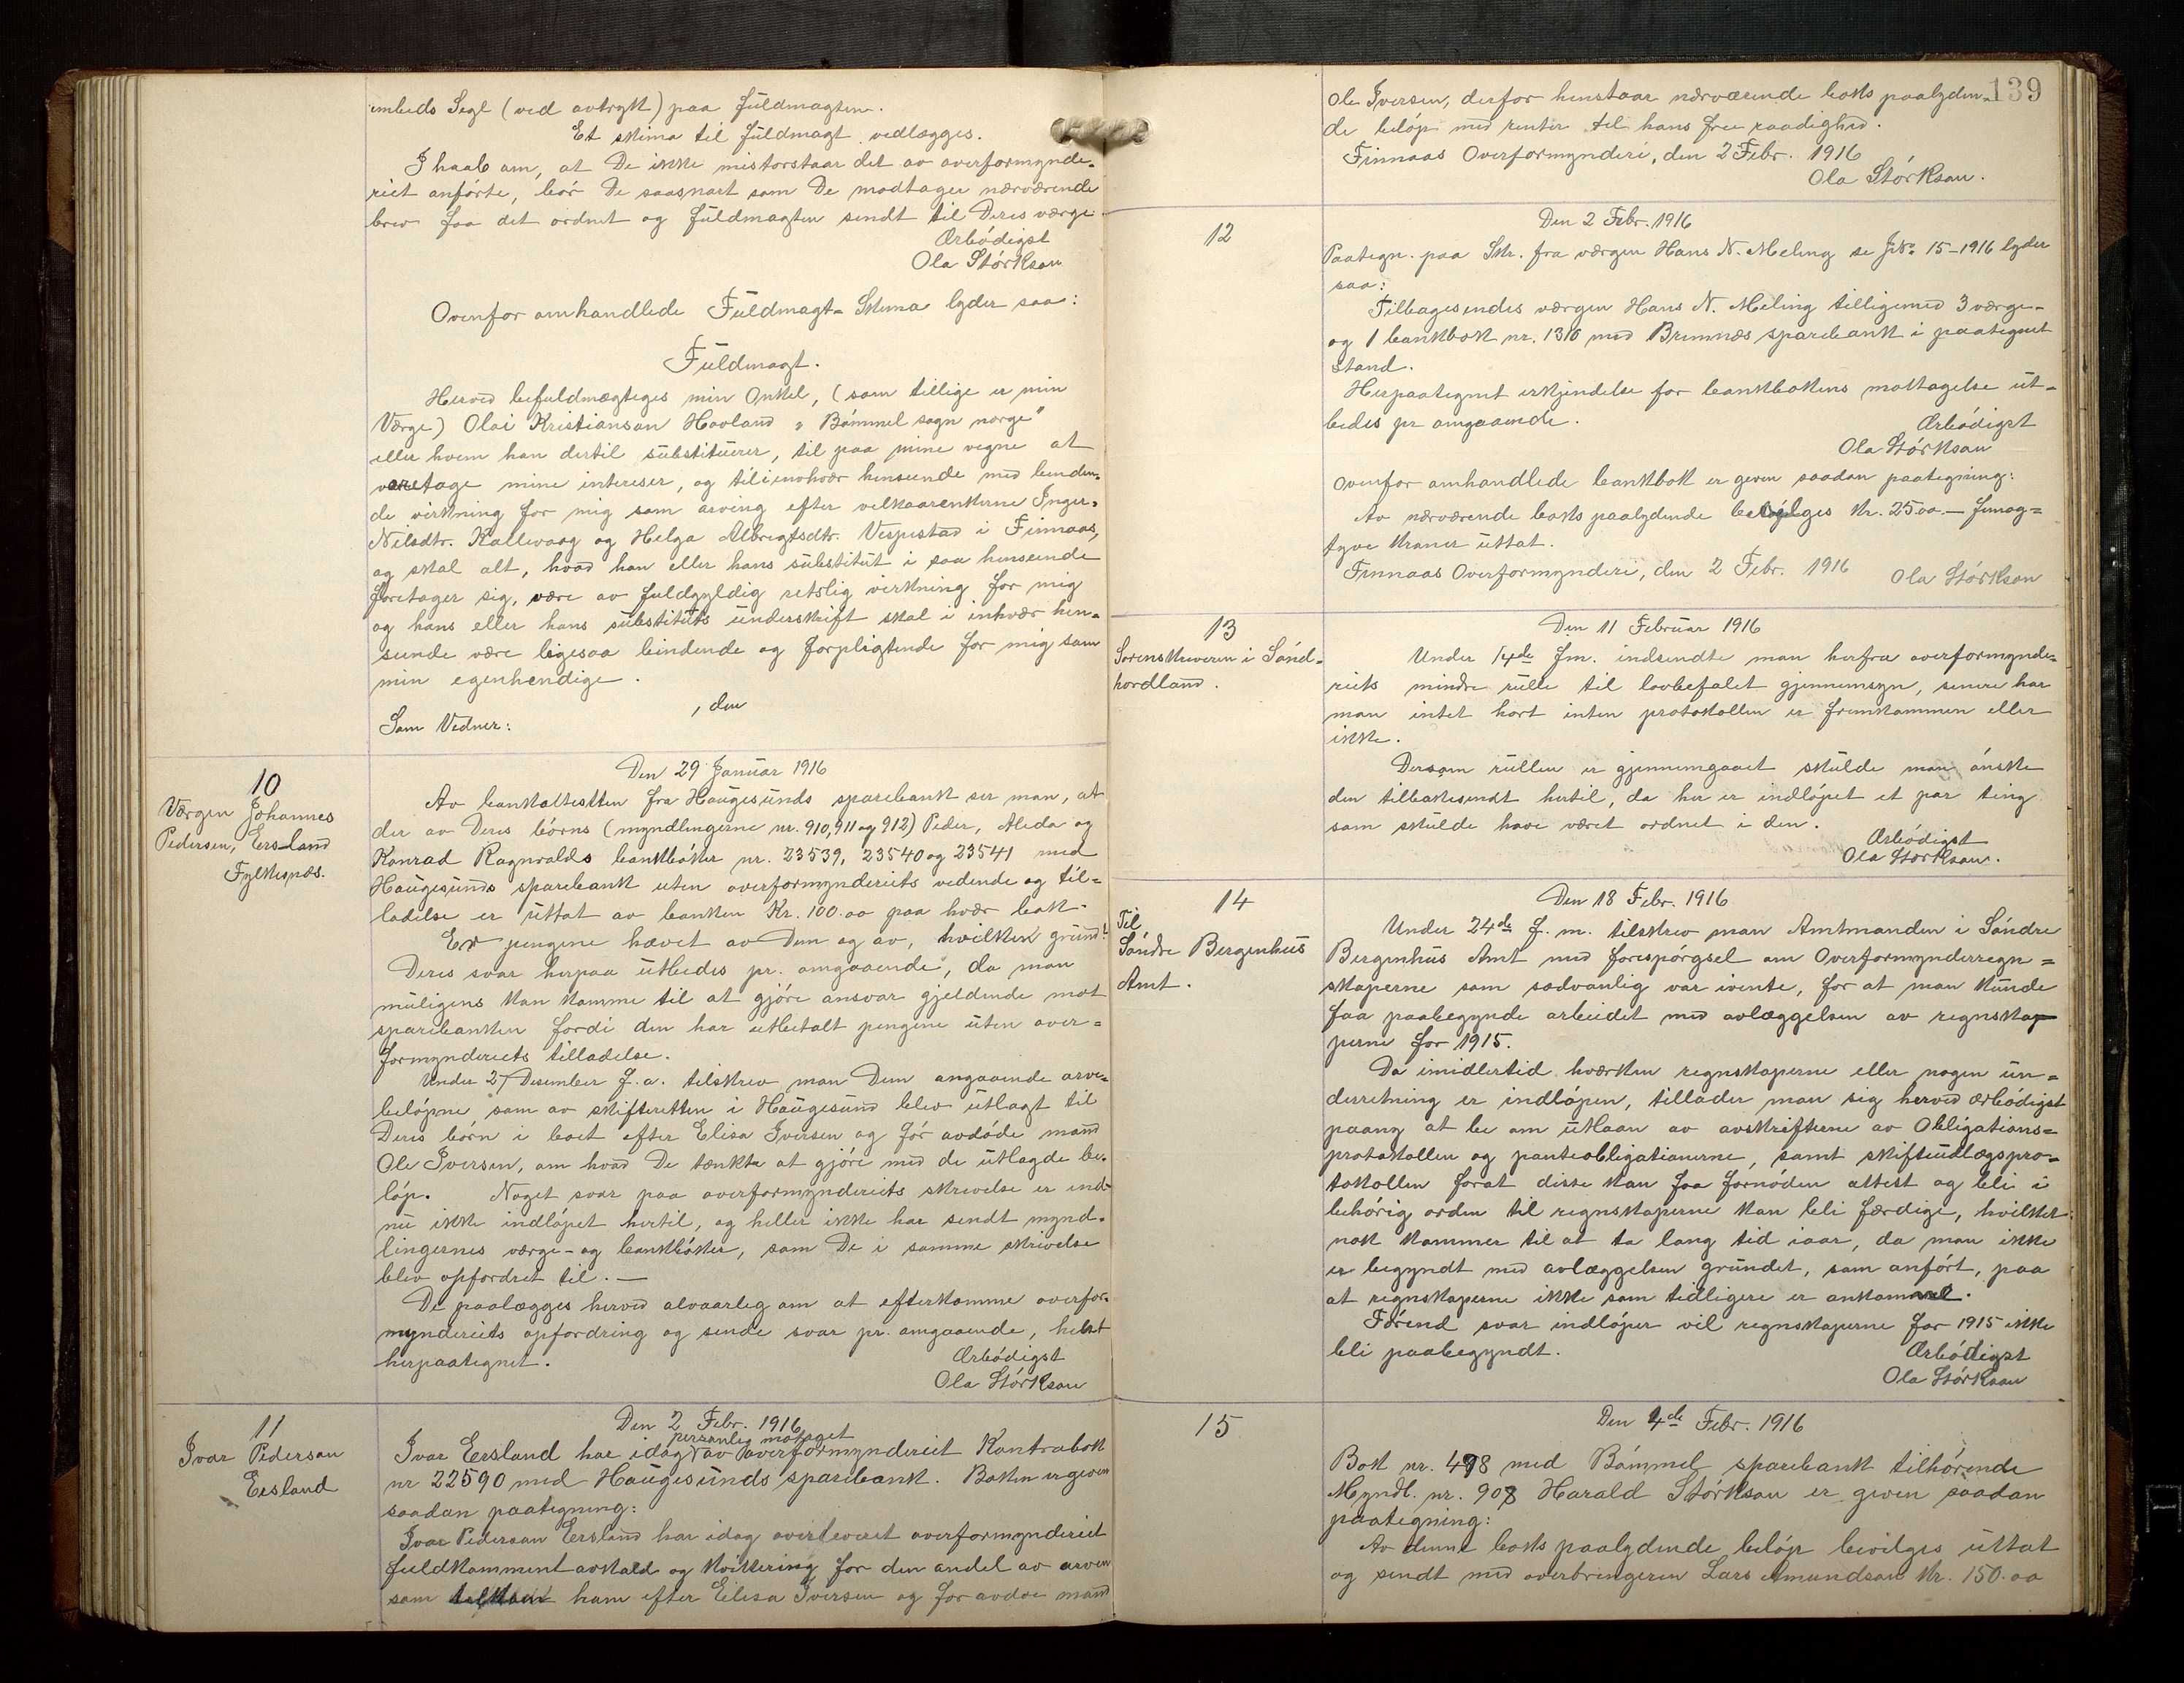 embeds Segl (ved avtrykt) paa fuldmagten.
Et skima til fuldmagt vedlægges.
I haab om, at De ikke mistorstaar det av overformynde-
riet anførte, bør De saasnart som De modtager nærværende
brev faa det ordnet og fuldmagten sendt til Deres værge.
Ærbødigst
Ola Størkson
Ovenfor omhandlede Fuldmagt-Skima lyder saa:
Fuldmagt.
Herved befuldmægtiges min Onkel, (som tillige er min
Værge) Olai Kristianson Hovland "Bømmel sogn norge"
eller hvem han dertil substituerer, til paa mine vegne at
varetage mine intereser, og til i enhvær henseende med binden-
de virkning for mig som arving efter velkaarenkerne Inger
Nilsdtr. Kallevaag og Helga Albregtsdtr. Vespestad i Finnaas,
og skal alt, hvad han eller hans substitut i saa henseende
foretager sig, være av fuldgyldig retslig virkning for mig
og hans eller hans substituts underskrift skal i inhvær hen-
seende være ligesaa bindende og forpligtende for mig som
min egenhendige.
, den
Som Vedner:
10
Værgen Johannes
Pedersen, Ersland
Fylkesnæs.
Den 29 Januar 1916
Av bankattesten fra Haugesunds sparebank ser man, at
der av Deres børns (myndlingerne nr. 910, 911 og 912) Peder, Aleda og
Konrad Ragnvalds bankbøker nr. 23539, 23540 og 23541 med
Haugesunds sparebank uten overformynderiets vedende og til-
ladelse er uttat av banken Kr. 100.oo paa hvær bok.
Er pengene hævet av Dem og av, hvilken grund?
Deres svar herpaa utbedes pr. omgaaende, da man
muligens kan komme til at gjøre ansvar gjeldende mot
sparebanken fordi den har utbetalt pengene uten over-
formynderiets tilladelse.
Under 27 Desember f.a. tilskrev man Dem angaaende arve-
beløpne som av skifteretten i Haugesund blev utlagt til
Deres børn i boet efter Elisa Iversen og før avdøde mand
Ole Iversen, om hvad De tænkte at gjøre med de utlagde be-
løp. Noget svar paa overformynderiets skrivelse er end-
nu ikke indløpet hertil, og heller ikke har sendt mynd-
lingernes værge- og bankbøker, som De i samme skrivelse
blev opfordret til. —
De paalægges herved alvaarleg om at efterkomme overfor-
mynderiets opfordring og sende svar pr. omgaaende, helst
herpaategnet.
Ærbødigst
Ola Størkson
11
Ivar Pederson
Ersland
Den 2 Febr. 1916
personlig motaget
Ivar Ersland har idag av overformynderiet Kontrabok
nr 22590 med Haugesunds sparebank. Boken er given
saadan paategning:
Ivar Pederson Ersland har idag overleveret overformynderiet
fuldkomment avkald og kvittering for den andel av arven
som ham efter Elisa Iversen og før avdøe mand
139
Ole Iversen, derfor henstaar nærværende boks paalyden-
de beløp med renter til hans frie raadighed.
Finnaas Overformynderi, den 2 Febr. 1916
Ola Størkson.
12
Den 2 Febr. 1916
Paategn. paa Skr. fra værgen Hans N. Meling se 15-1916 lyder
saa:
Tilbagesendes værgen Hans N. Meling tilligemed 3 værge-
og 1 bankbok nr. 1316 med Bremnæs sparebank i paategnet
stand.
Herpaategnet erkjendelse for bankbokens mottagelse ut-
bedes pr omgaaende.
Ærbødigst
Ola Størkson
Ovenfor omhandlede bankbok er given saadan paategning:
Av nærværende boks paalydende kr. 25.oo.— femog-
tyve kroner uttat.
Finnaas Overformynderi, den 2 Febr. 1916
Ola Størkson
13
Sorenskriveren i Sønd-
hordland.
Den 11 Februar 1916
Under 14de fm. indsendte man herfra overformynde-
riets mindre rulle til lovbefalet gjennemsyn, senere har
man intet hørt enten protokollen er fremkommen eller
ikke.
Dersom rullen er gjennemgaaet skulde man ønske
den tilbakesendt hertil, da her er indløpet et par ting
som skulde have været ordnet i den.
Ærbødigst
Ola Størkson.
14
Til
Søndre Bergenhus
Amt.
Den 18 Febr. 1916
Under 24de f.m. tilskrev man Amtmanden i Søndre
Bergenhus Amt med forespørgsel om Overformynderregn-
skaperne som sædvanlig var ivente, for at man kunde
faa paabegynde arbeidet med avlæggelsen av regnskap
perne for 1915.
Da imidlertid hværken regnskaperne eller nogen un-
derretning er indløpen, tillader man sig herved ærbødigst
paany at be om utlaan av avskrifterne av Obligations-
protokollen og panteobligationerne, samt skifteudlægspro-
tokollen forat disse kan faa fornøden attest og bli i
behørig orden til regnskaperne kan bli færdige, hvilket
nok kommer til at ta lang tid iaar, da man ikke
er begyndt med avlæggelsen grundet, som anført, paa
at regnskaperne ikke som tidligere er ankommet.
Førend svar indløper vil regnskaperne for 1915 ikke
bli paabegyndt.
Ærbødigst
Ola Størkson
15
Den 4de Febr. 1916
Bok nr. 498 med Bømmel sparebank tilhørende
Myndl. nr. 908 Harald Størkson er given saadan
paategning:
Av denne boks paalydende beløp bevilges uttat
og sendt med overbringeren Lars Amundson kr. 150.oo